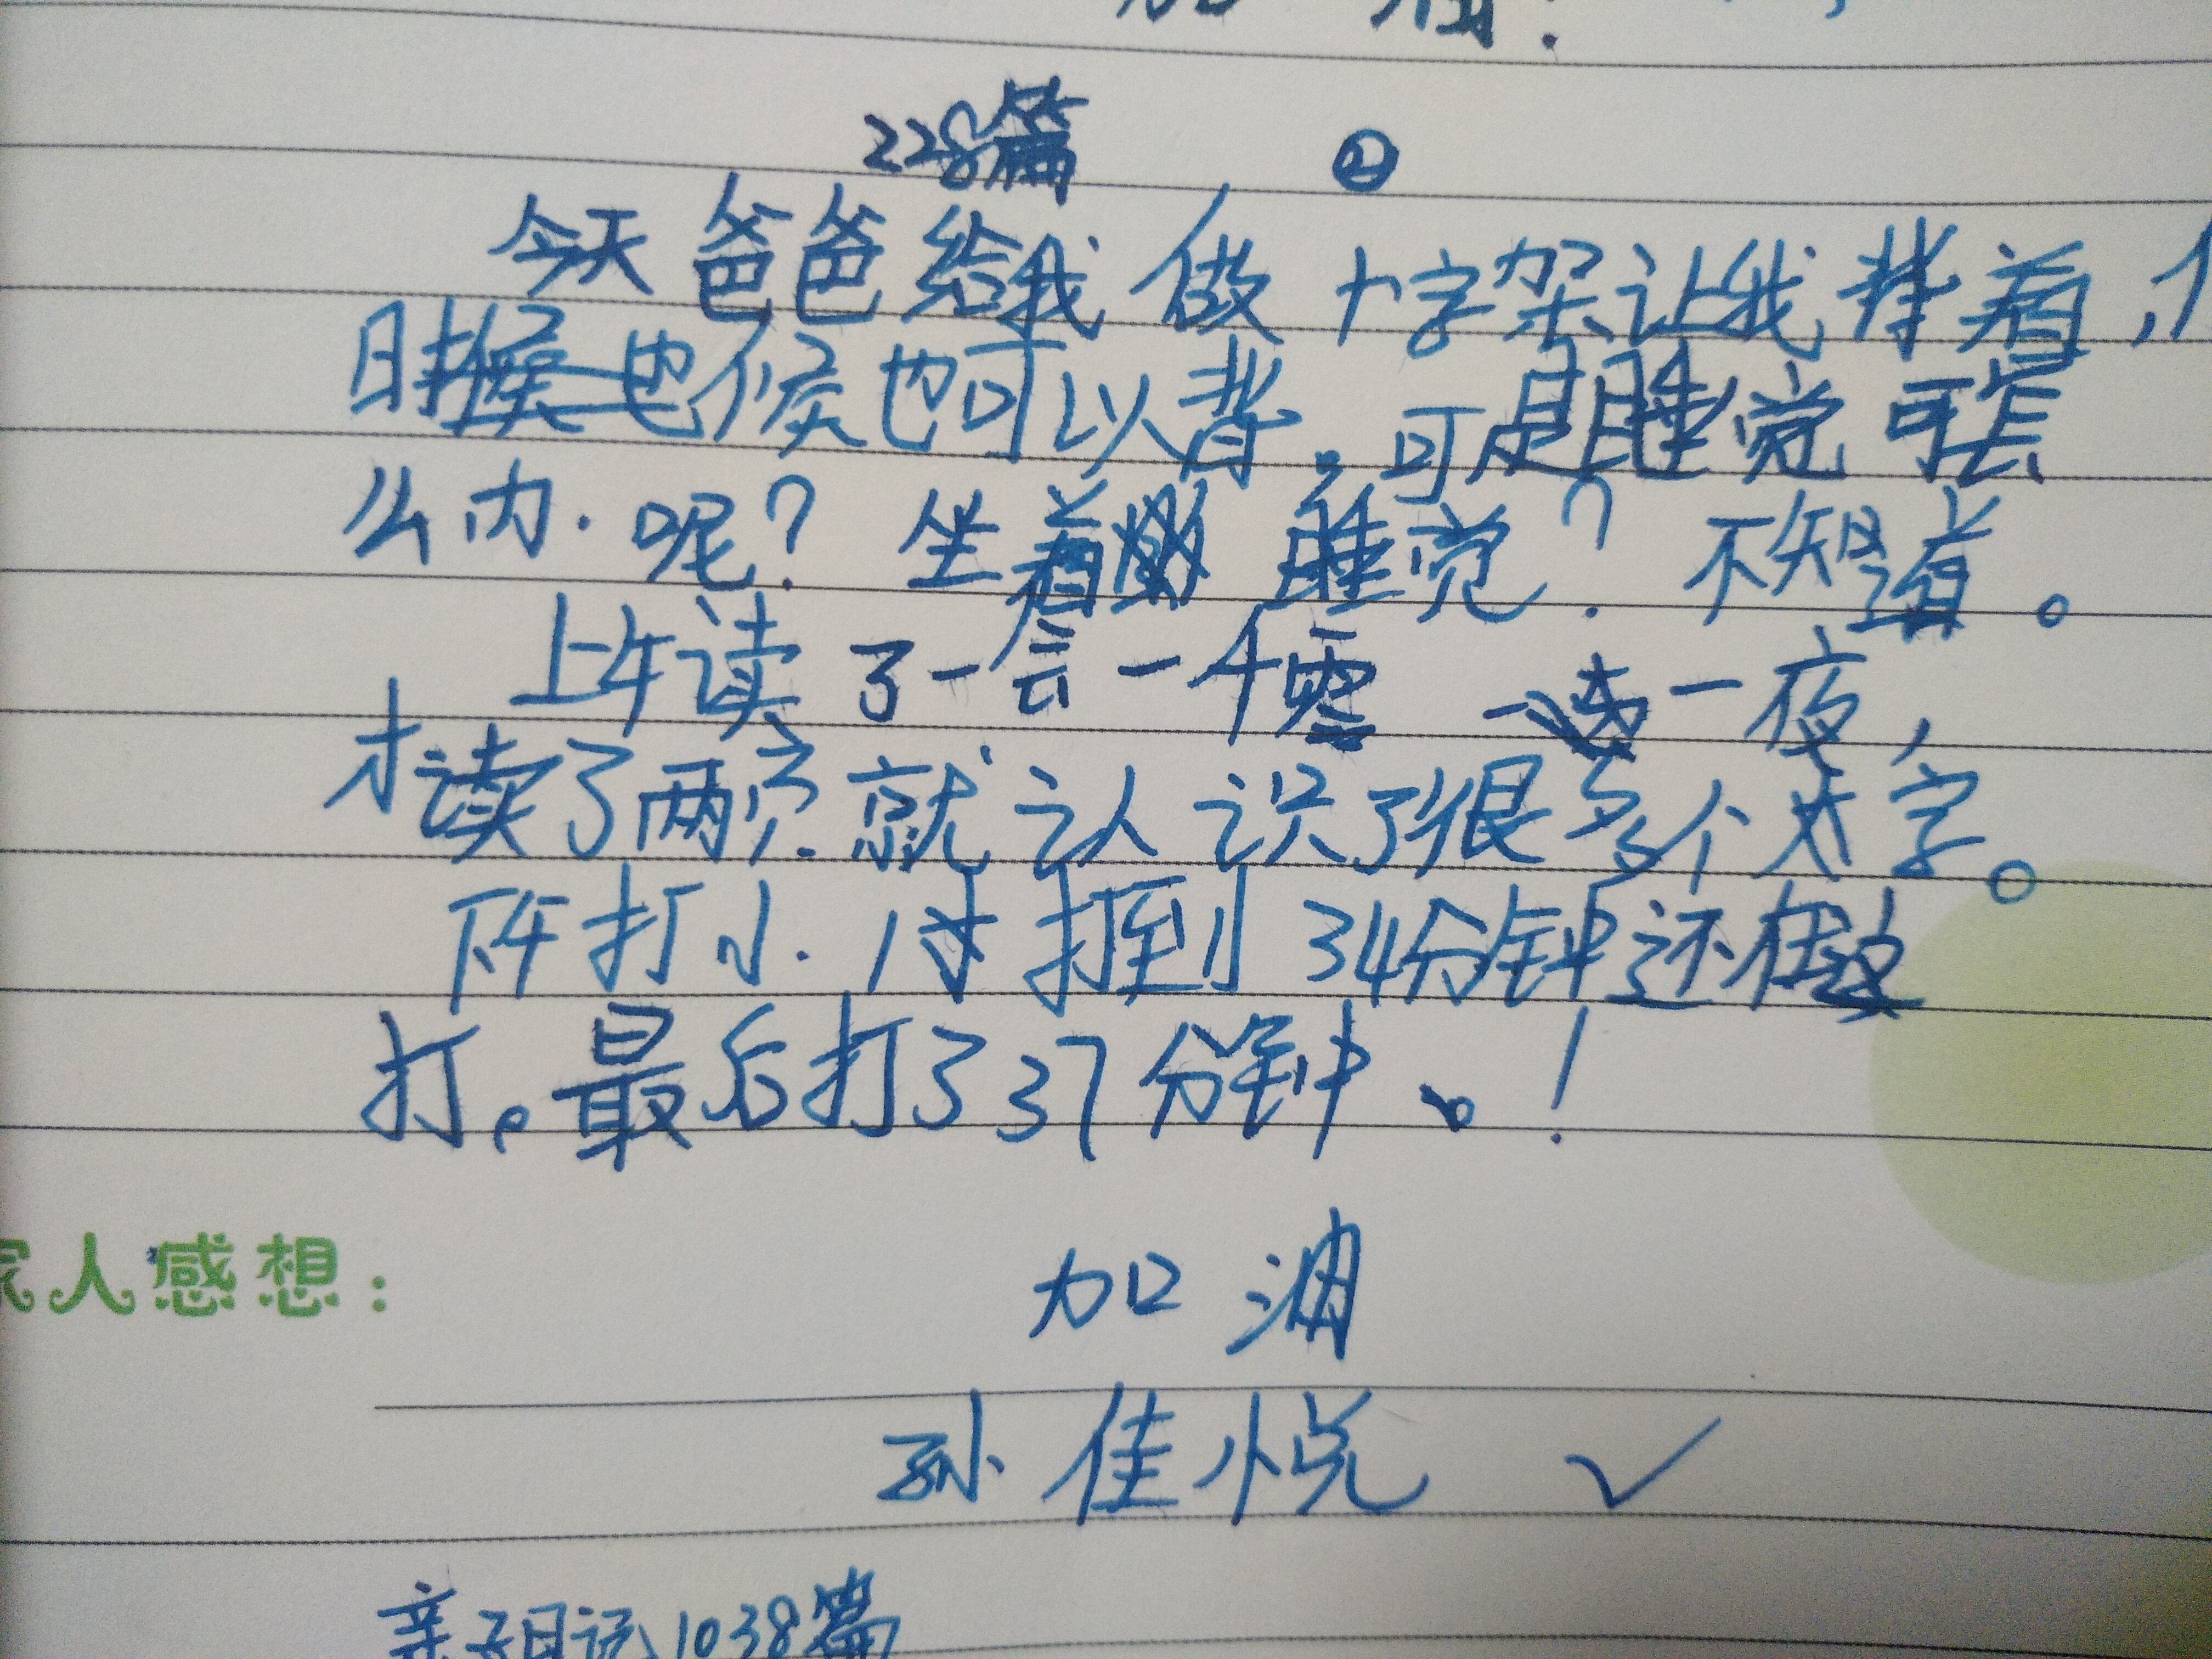 加油!
228篇 ②
今天爸爸给我做十字架让我背着,
时候也可以背。可是睡觉可怎
么办呢?坐着睡觉?不知道。
上午读了一会一千零一夜,
才读了两页就认识了很多个大字。
下午打小 打到34分钟还在
打。最后打了37分钟。!
家人感想:
加油
孙佳悦 ✓
亲子日记1038篇